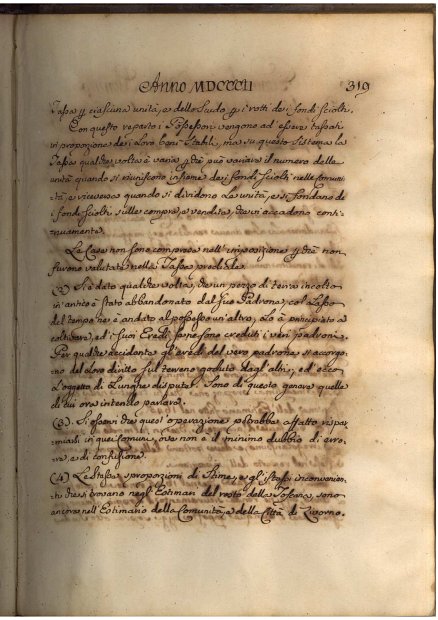 Anno MDCCCII 319
Tassa p ciascuna unità, e dello Scudo p i rotti dei fondi sciolti.
Con questo reparto i Possessori vengono ad essere tassati
in proporzione dei loro beni Stabili, ma su questo sistema la
Tassa qualche volta è varia p chè può variare il numero delle
unità quando si riuniscono insieme dei fondi sciolti nelle Comuni
tà, e viceversa quando si dividono le unità, e si fondano dei
fondi sciolti sulle compre, e vendite, che vi accadono conti-
nuamente.
Le Case non sono comprese nell'imposizione p chè non
furono valutate nella Tassa prediale.
(2) Si è dato qualche volta, che un pezzo di terra incolto
in antico è stato abbandonato dal suo Padrone; col lasso
del tempo ne è andato al possesso un'altro, lo à principiato a
coltivare, ed i suoi Eredi se ne sono creduti i veri padroni.
Per qualche accidente gl'eredi del vero padrone si accorgo-
no del loro diritto sul terreno goduto dagl'altri, ed ecco
l'oggetto di lunghe dispute. Sono di questo genere quelle
di cui ora intendo parlare.
(3) Si osservi che quest'operazione potrebbe affatto rispar-
miarsi in quei Comuni, ove non è il minimo dubbio di erro-
re, e di confusione.
(4) Le stesse sproporzioni di Stime, e gl'istessi inconvenien-
ti che si trovano negl'Estimari del resto della Toscana, sono
ancora nell'Estimario della Comunità, e della Città di Livorno.